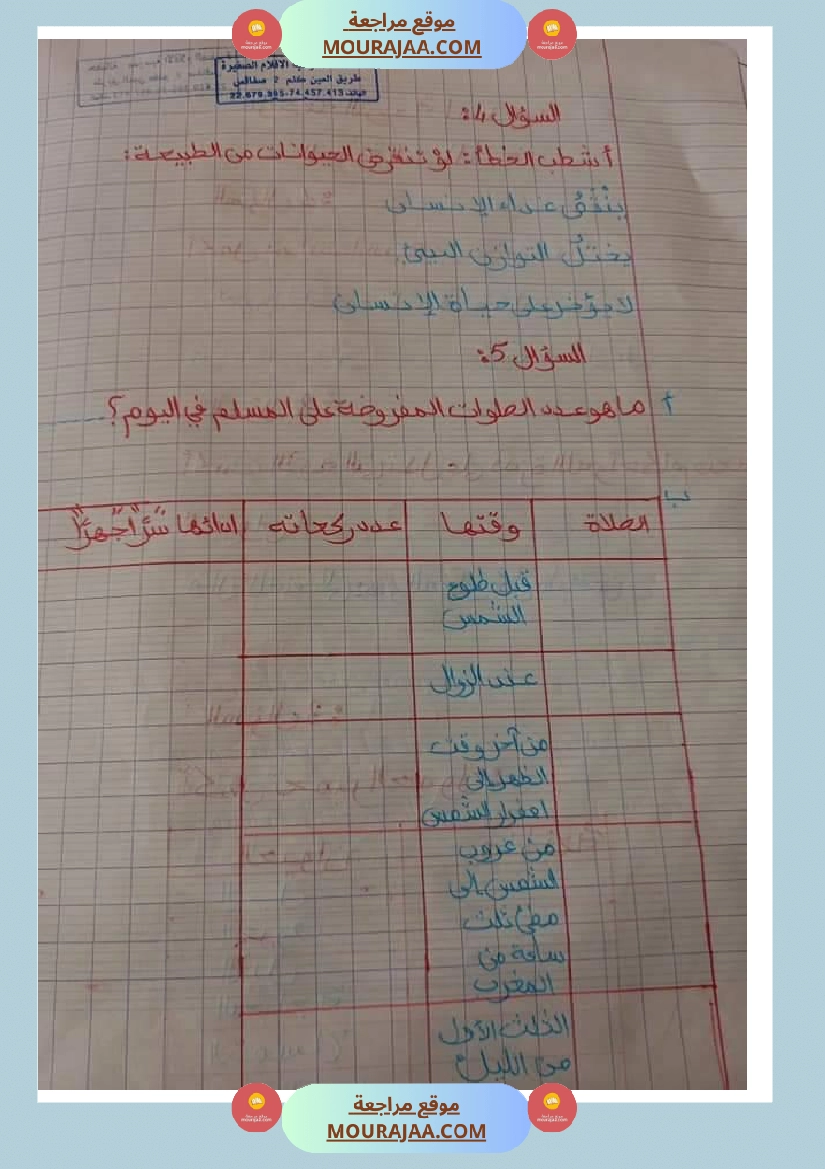 موقع مراجعة
MOURAJAA.COM
الأقلام الصغيرة
طريق العين
السؤال 4:
أشطب الخطأ: لو تنقرض الحيوانات من الطبيعة:
ينقص غذاء الإنسان
يختلّ التوازن البيئي
لا يؤثر على حياة الإنسان
السؤال 5:
أ ما هو عدد الصلوات المفروضة على المسلم في اليوم؟
ب
الصلاة وقتها عدد ركعاته ادائها سرّا جهرّا
قبل طلوع
الشمس
عند الزوال
من آخر وقت
الظهر إلى
اصفرار الشمس
من غروب
الشمس إلى
مضيّ ثلث
ساعة من
المغرب
الثلث الأول
من الليل
موقع مراجعة
MOURAJAA.COM